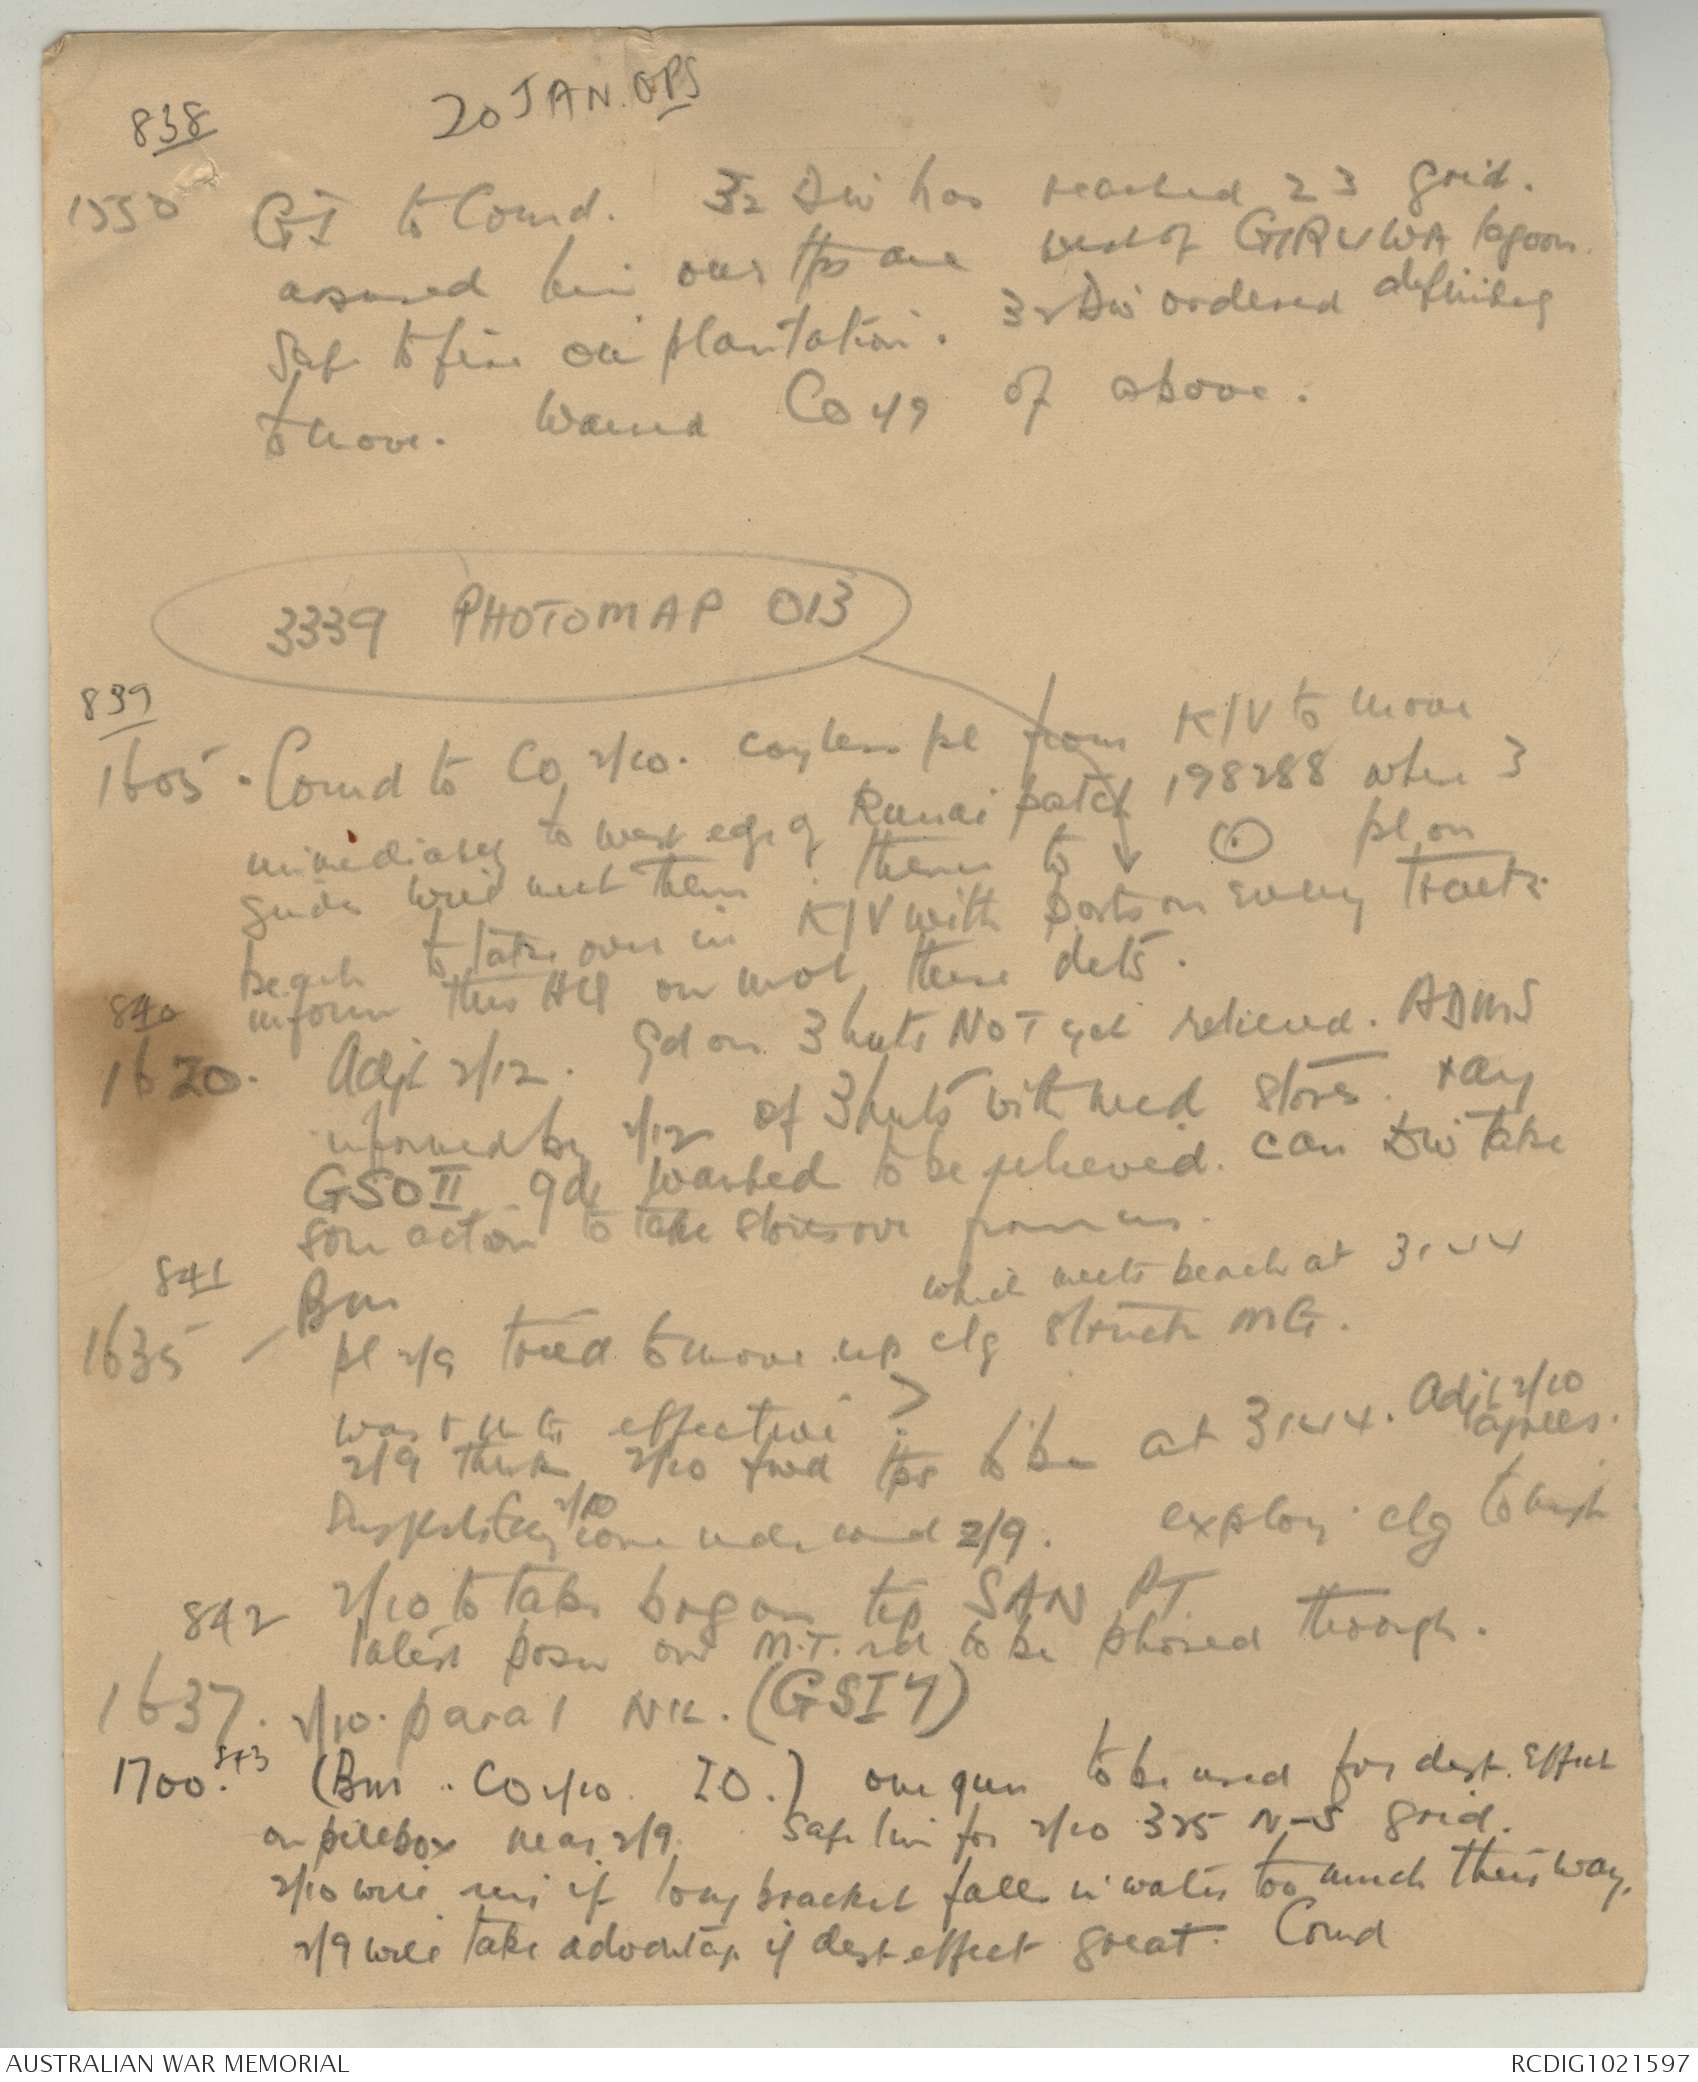 20 JAN. OPS
838
1550 GI to Comd. 32 Div has reached 23 grid.
assured him our tps are west of GIRUWA lagoon.
Safe to fire on plantation. 32 Div ordered definitely
to move. Warned CO 49 of above.
3339 PHOTOMAP 013
839
1605. Comd to CO 2/10. coy less pl from K/V to move
immediately to west edge of Kunai patch 198288 where 3
guides will meet them. thence to ⊙ pl on
to take over in K/V with posts on every track.
inform this HQ on these dets.
840
1620. Adjt 2/12. gd on 3 huts NOT yet relieved. ADMS
informed by 2/12 of 3 huts with med stores.
GSO II gd wanted to be relieved. can Div take
some action to take stores over from us.
841
Bm which meets beach at 3144
1635 — pl 2/9 tried to move up clg struck MG.
was MG effective?
2/9 think 2/10 fwd tps to be at 3144. Adjt 2/10
agrees.
2/10 come under comd 2/9. clg to
2/10 to take on SAN PT
842
latest posn on M.T. rd to be phoned through.
1637. 2/10. para 1 NK. (GSI 4)
843
1700. (Bm. CO 2/10. IO.) one gun to be used for dest. effect
on pillbox near 2/9. Safe line for 2/10 325 N-S grid.
2/10 will if long bracket falls in water too much their way,
2/9 will take advantage if dest effect great. Comd
AUSTRALIAN WAR MEMORIAL
RCDIG1021597